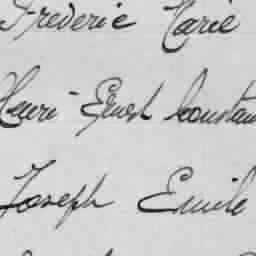 Frederic Marie
Henri-Ernest Constan
Joseph Emile